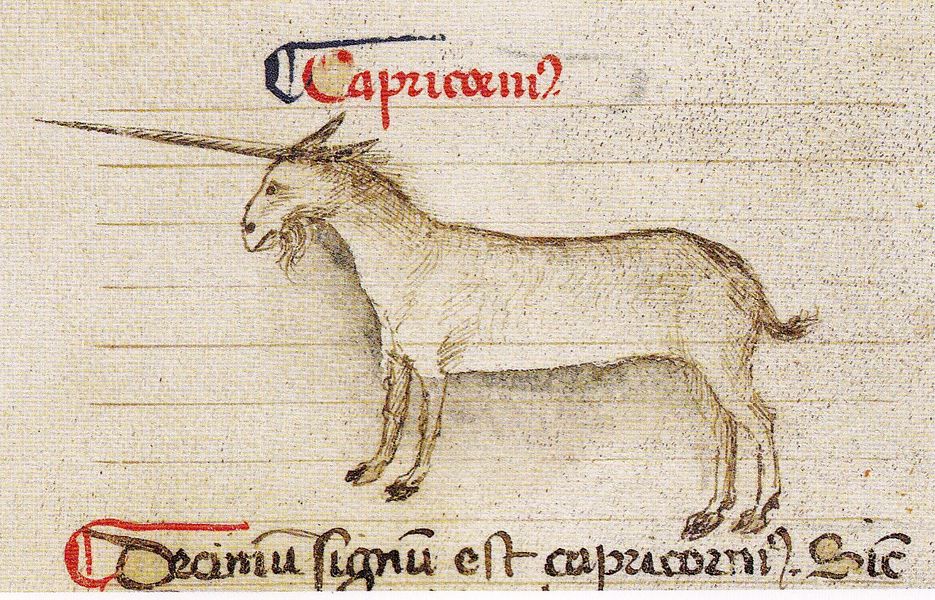 ¶ Capricornꝰ
¶ Decimū signū est capricornꝰ. Sic̄